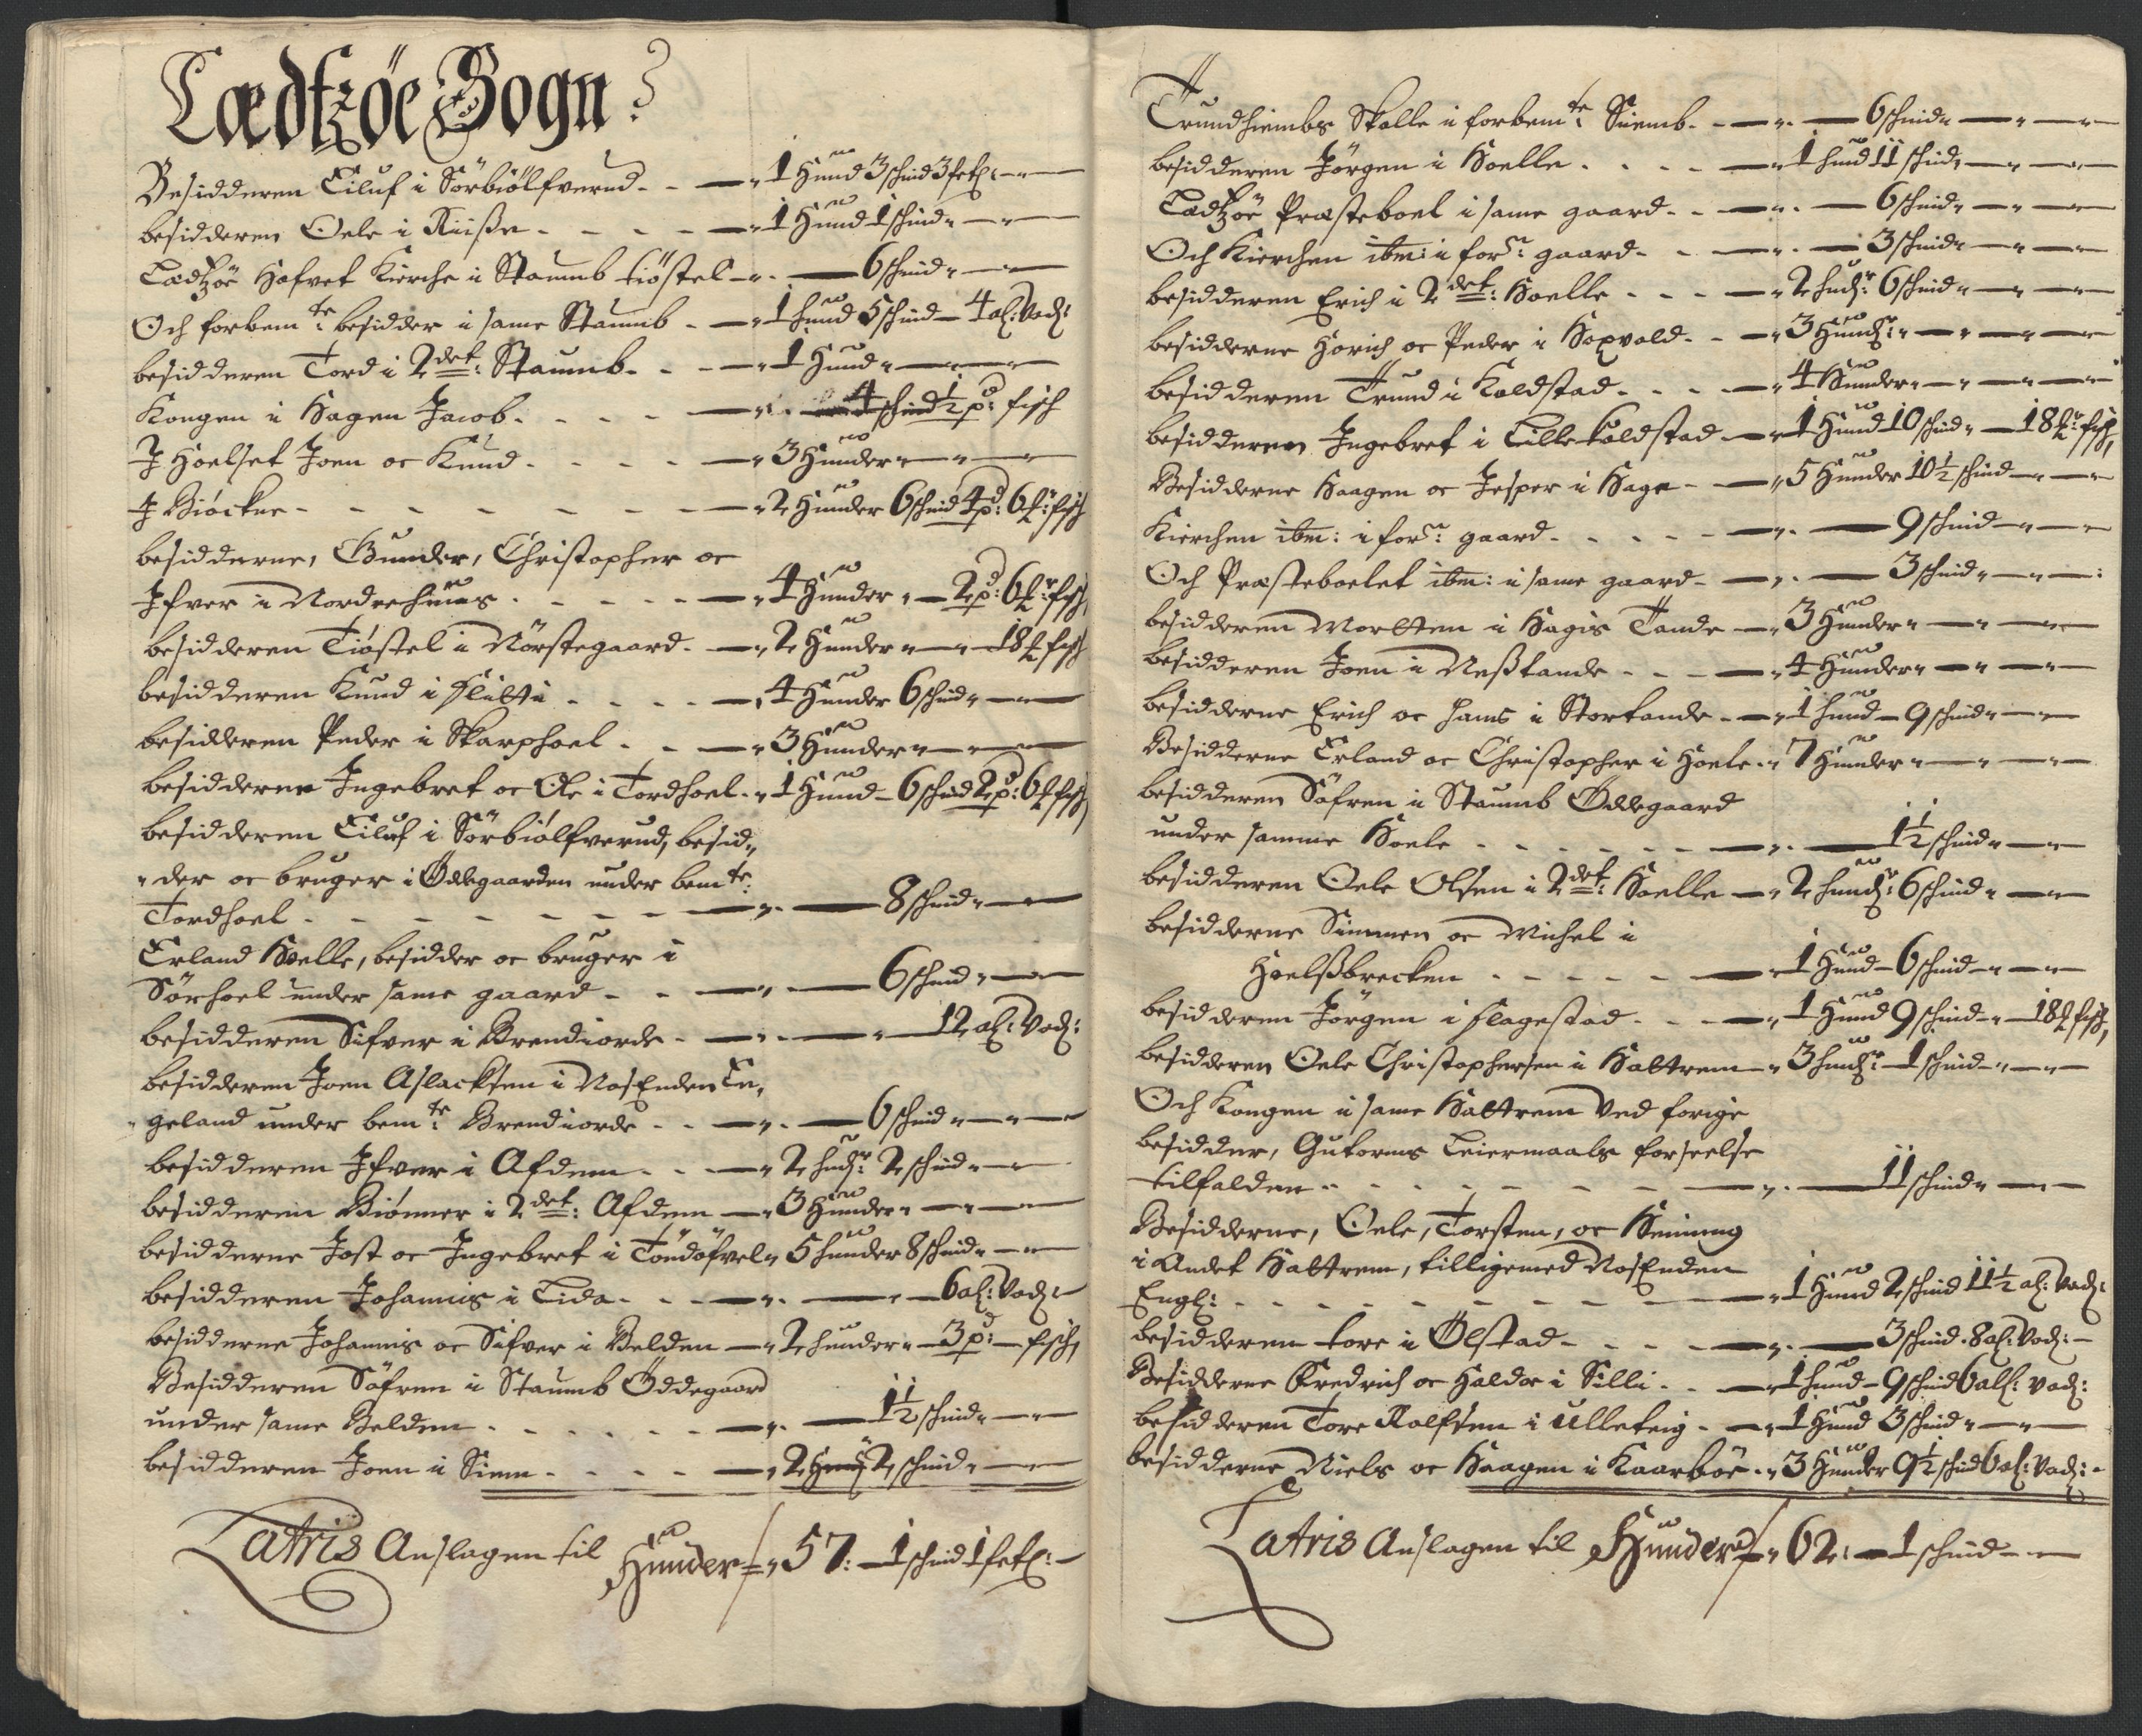 Lædtzöe Sogn
Besidderen Eiluf i Sörbiölfverud - - 1 Hund 3 schind 3 fetz:
besidderen Oele i Riisze - - - - 1 Hund 1 schind
Lædtzöe Hofvet Kierche i Staumb tiöstel - 6 schind
Och forbemte: besidder i same Staumb - 1 hund 5 schind - 4 al: Vad:
besidderen Tord i 2det: Staumb - - 1 Hund
Kongen i Hagen Jacob - - - - ½ pd: fisch
J Hoelset Joen oc Knud - - - - 3 Hunder
J Biöckne - - - - - - - 2 Hunder 6 schind 4 pd: 6 ℔: fisch
besidderne, Gunder, Christopher oc
Ifver i Nordrehuus - - - - - 4 Hunder - 2 pd: 6 ℔: fisch
besidderen Tiöstel i Nörstegaard - 2 Hunder - 18 ℔ fisch
besidderen Knud i Flitti - - - - 4 Hunder 6 schind
besidderen Peder i Skarphoel - - 3 Hunder
besidderne Ingebret oc Ole i Tordhoel - 1 Hund - 6 schind 2 pd: 6 ℔ fisch
besidderen Eiluf i Sörbiölfverud, besid-
der oc bruger i Ödegaarden under bemte:
Tordhoel - - - - - - - 8 schind
Erland Hoelle, besidder oc bruger i
Sörhoel under same gaard - - 6 schind
besidderen Sifver i Brendiorde - - 12 al: Vad:
besidderen Joen Aslacksen i NosEnden En-
geland under bemte: Brendiorde - - 6 schind
besidderen Ifver i Afdem - - 2 hudr: 2 schind
besidderen Biönner i 2det: Afdem - 3 Hunder
besidderne Jost oc Ingebret i Töndöfvel 5 hunder 8 schind
besidderen Johannis i Lida - - - 6 al: Vad:
besidderne Johannis oc Sifver i Belden - 2 hunder - 3 pd: - fisch
Besidderen Söfren i Staumb Öddegaard
under same Belden - - - - - - 1½ schind
besidderen Joen i Siem - - - - 2 Hund 2 schind
Latris Anslagen til Hunder - 57: - 1 schind 1 fetz: -
Trundhiembs Stolle i forbemte: Siemb - - 6 schind
besidderen Jörgen i Hoelle - - - - 1 hund 11 schind
Lædtzöe Præsteboel i same gaard - - 6 schind
Och Kierchen ibm: i forne: gaard - - 3 schind
besidderen Erich i 2det: Hoelle - - - 2 hudr: 6 schind
besidderne Horich oc Peder i Hoxvold - - 3 Hundr:
besidderen Trund i Koldstad - - - 4 Hunder
besidderen Ingebret i Lille Koldstad - 1 Hund 10 schind - 18 ℔: fisch
Besidderne Haagen oc Jesper i Hage - - 5 Hunder 10½ schind
Kierchen ibm: i forne: gaard - - - - 9 schind
Och Præsteboelet ibm: i same gaard - 3 schind
besidderen Mortten i Hagis Tande - 3 Hunder
besidderen Joen i Nesztande - - - 4 Hunder
besidderne Erich oc Hans i Stortande - 1 hund - 9 schind
Besidderne Erland oc Christopher i Hoele - 7 Hunder
besidderen Söfren i Staumb Ödegaard
under samme Hoele - - - - - - 1½ schind
besidderen Oele Olsen i 2det: Hoelle - 2 hundr: 6 schind
besidderne Simmen oc Michel i
Hoelszbrecken - - - - - 1 Hund - 6 schind
besidderen Jörgen i Flagestad - - - 1 Hund 9 schind - 18 ℔ fisch
besidderen Oele Christophersen i Hattrem - 3 hundr: - 1 schind
Och Kongen i same Hattrem Ved forige
besidder, Gutorms Leiermaals forseelse
tilfalden - - - - - - - 11 schind
Besidderne, Oele, Torsten, oc Henning
i Andet Hattrem, tilligemed NosEnden
Engl: - - - - - - - 1 Hund 2 schind 11½ al: Vad:
besidderen Tore i Ölstad - - - - 3 schind - 8 al: Vad: -
Besidderne Fredrich oc Haldor i Silli - - 1 hund - 9 schind 6 al: Vad:
besidderen Tore Rolfsen i Ulleteig - 1 Hund 3 schind
besidderne Niels oc Haagen i Kaarböe - 3 Hunder 9½ schind 6 al: Vad: -
Latris Anslagen til Hunder - 62: - 1 schind